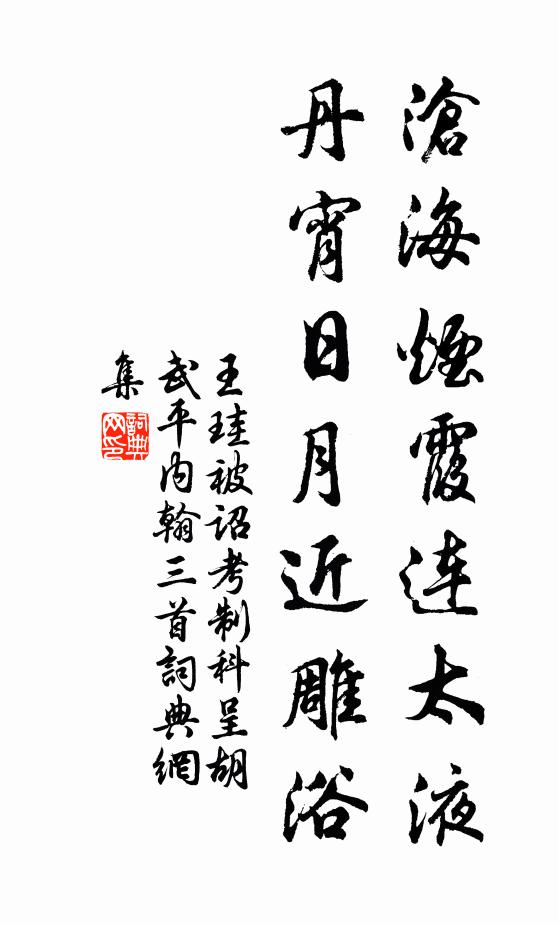 滄海煙霞連太液
丹宵日月近雕浴
王珪被詔考制科呈胡
武平内翰三首詞典網
集
詞典
网印